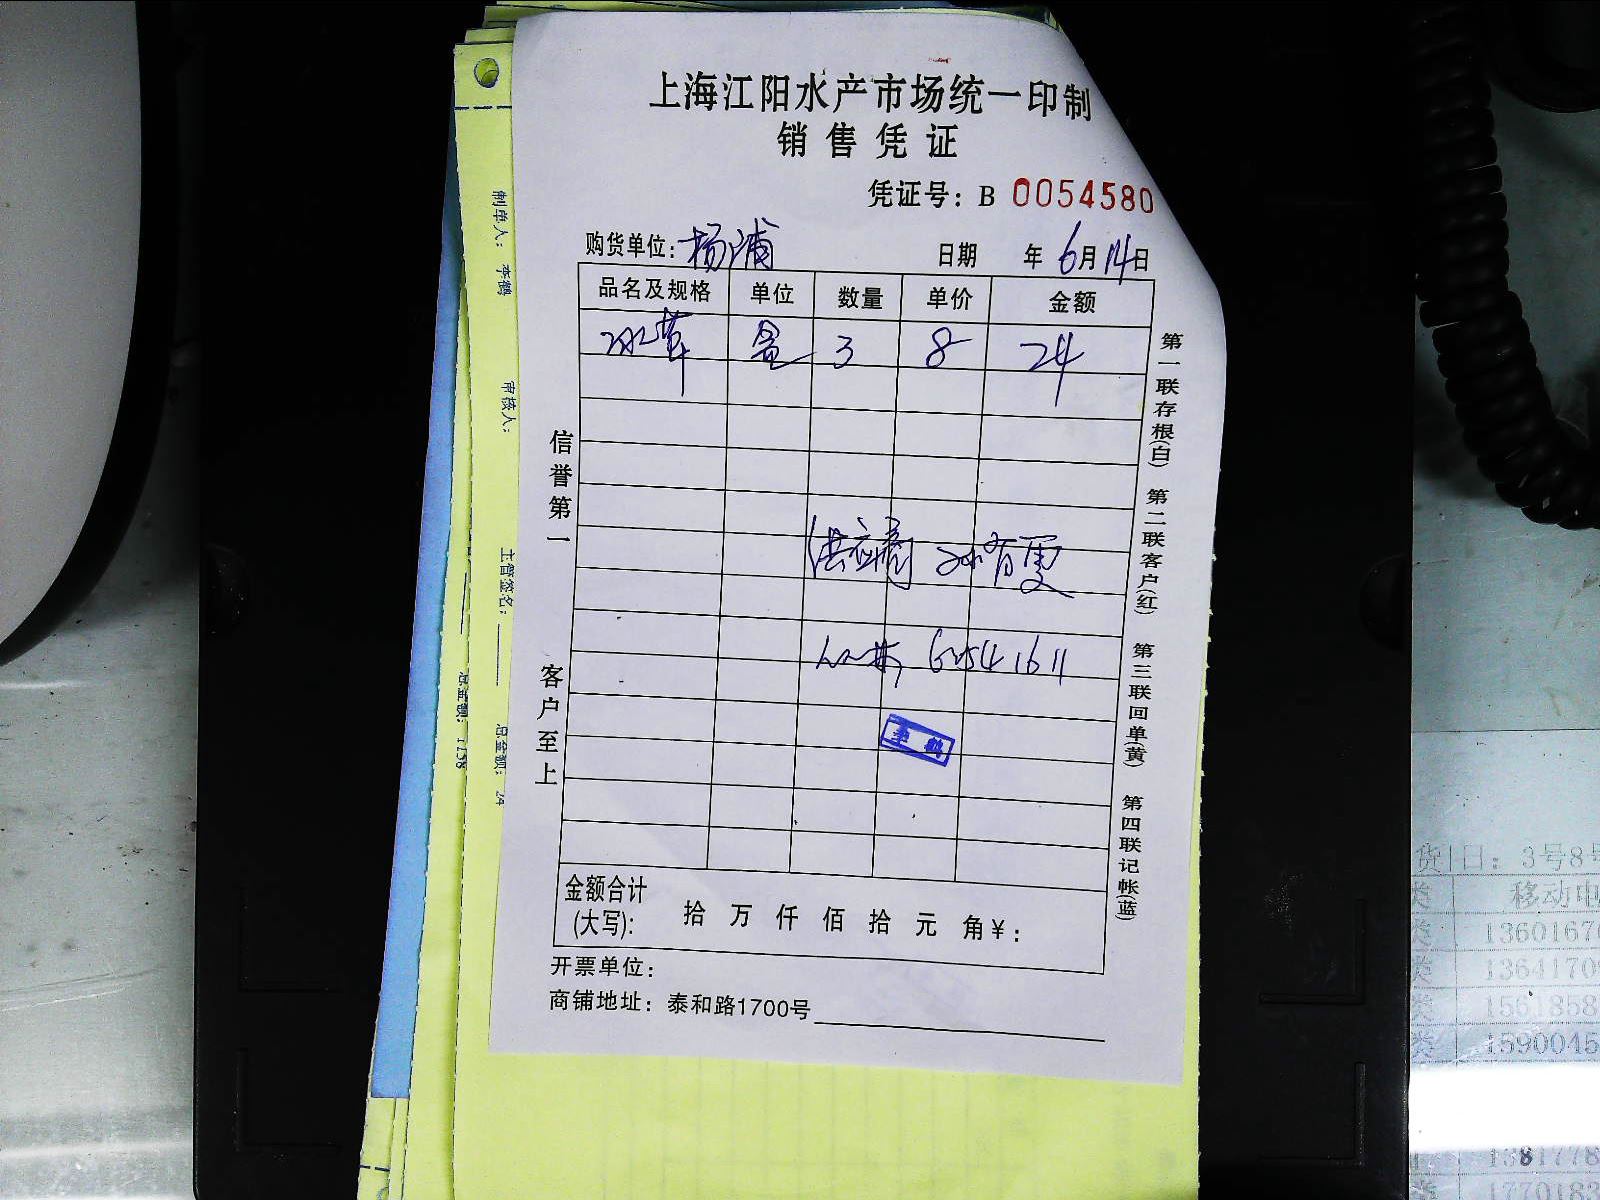 上海江阳水产市场统一印制
销售凭证
凭证号：B 0054580
购货单位：杨浦 日期 年 6月14日
品名及规格 单位 数量 单价 金额
冰草 盒 3 8 24
信誉第一 客户至上
孙有雯
李鹤
第一联存根(白) 第二联客户(红) 第三联回单(黄) 第四联记帐(蓝)
金额合计
(大写)： 拾 万 仟 佰 拾 元 角 ¥：
开票单位：
商铺地址：泰和路1700号
制单人： 李鹤 审核人： 主管签名： 总金额：24
总金额：1158
货日：3号8号
类 移动电
类 1360167
类 1364170
类 1561858
类 1590045
1381778
类 1770183